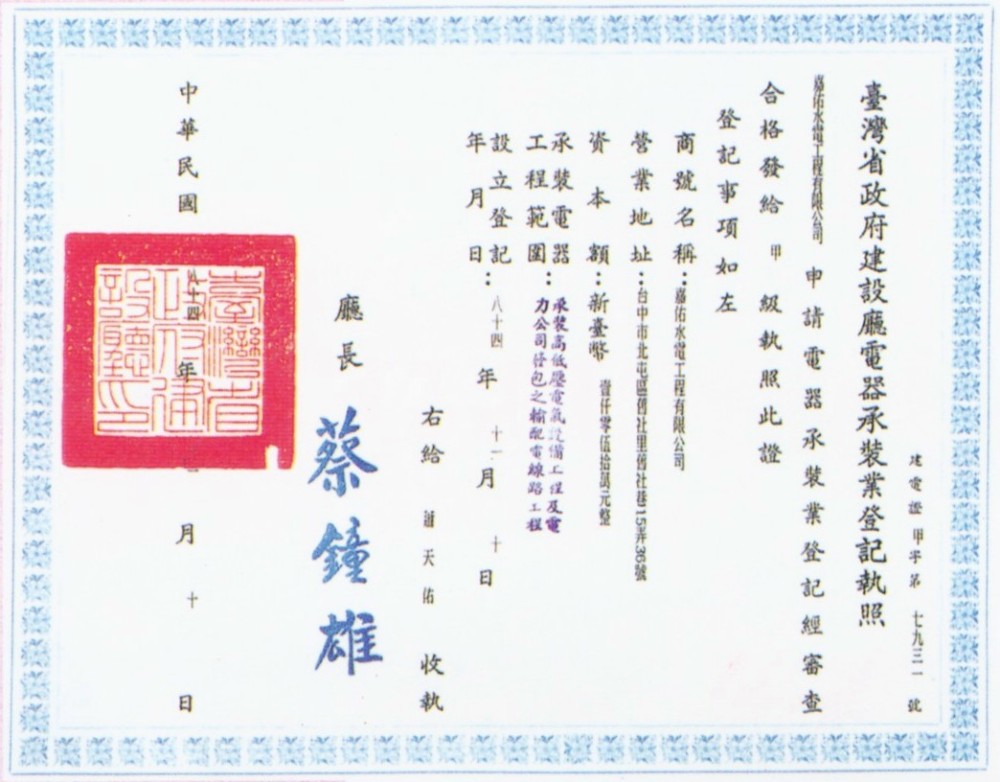 建電證甲字第七九三一號
臺灣省政府建設廳電器承裝業登記執照
嘉佑水電工程有限公司申請電器承裝業登記經審查
合格發給甲級執照此證
登記事項如左
商號名稱:嘉佑水電工程有限公司
營業地址:台中市北屯區舊社里舊社巷15弄36號
資本額:新臺幣壹仟零伍拾萬元整
承裝電器工程範圍:承裝高低壓電氣設備工程及電
力公司發包之輸配電線路工程
設立登記年月日:八十四年十一月十日
右給 天佑收執
廳長蔡鐘雄
臺灣省政府建設廳印
中華民國八十四年 月十日